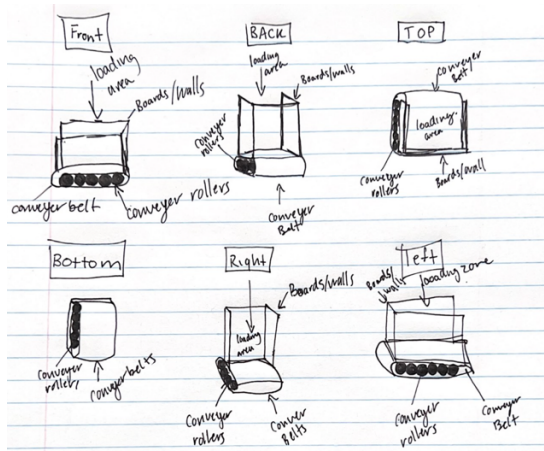 Front
loading
area
Boards/walls
conveyer belt
conveyer rollers
BACK
loading
area
Boards/walls
conveyer
rollers
Conveyer
Belt
TOP
conveyer
Belt
loading
area
conveyer
rollers
Boards/wall
Bottom
conveyer
rollers
conveyer belts
Right
Boards/walls
loading
area
Conveyer
rollers
Conver
Belts
left
Boards/
walls
loading zone
Conveyer
rollers
Conveyer
Belt